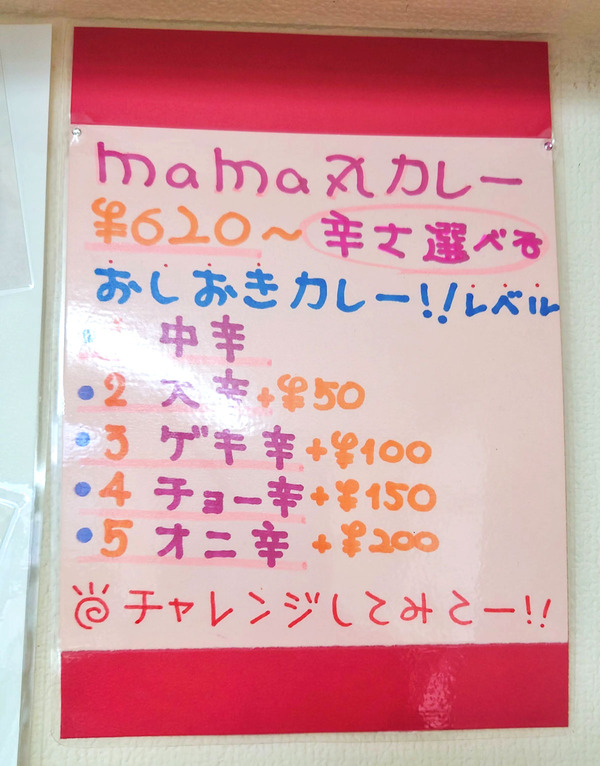 mama丸カレー
¥620～辛さ選べる
おしおきカレー!!レベル
1 中辛
• 2 大辛+¥50
• 3 ゲキ辛+¥100
• 4 チョー辛+¥150
• 5 オニ辛 +¥200
チャレンジしてみてー!!